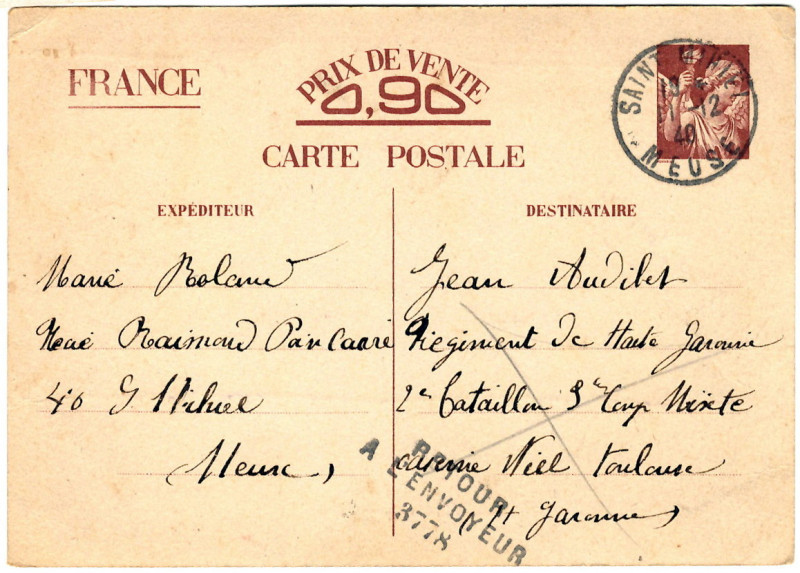 FRANCE
PRIX DE VENTE
0,90
CARTE POSTALE
SAINT MIHIEL
1 -12
40
MEUSE
EXPÉDITEUR
Marié Roland
Raimond Poincarré
40 St Mihiel
(Meuse)
DESTINATAIRE
Jean Audibet
Regiment de Haute Garonne
2e Bataillon 5e Comp Mixte
caserne Niel Toulouse
(Ht Garonne)
RETOUR
A L'ENVOYEUR
3778